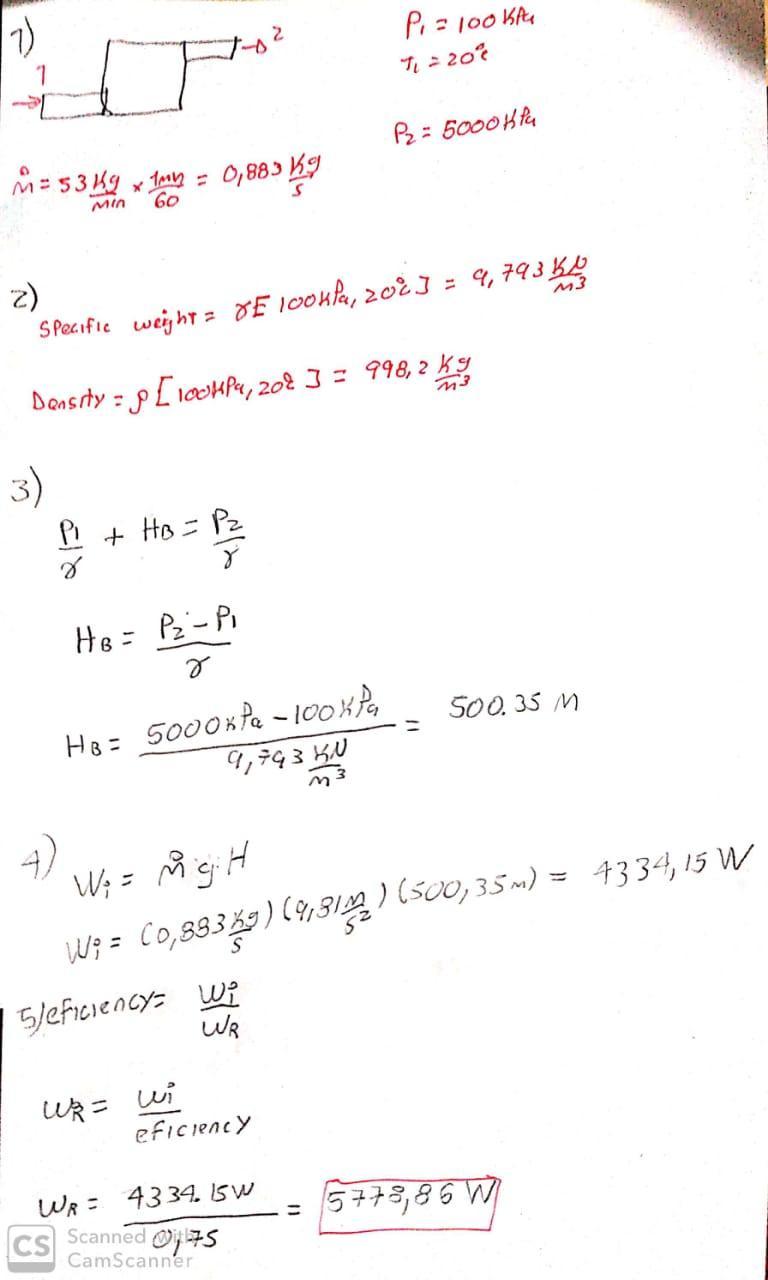 1)
1
2
P1 = 100 KPa
T1 = 20°C
P2 = 5000 KPa
ṁ = 53 Kg/min x 1min/60 = 0,883 Kg/s
2)
Specific weight = γ[100KPa, 20°C] = 9,793 KN/m3
Density = ρ[100KPa, 20°C] = 998,2 Kg/m3
3)
P1/γ + HB = P2/γ
HB = P2 - P1/γ
HB = 5000KPa - 100KPa/9,793 KN/m3 = 500.35 M
4)
Wi = ṁ g H
Wi = (0,883 Kg/s) (9,81 m/s2) (500,35m) = 4334,15 W
5/eficiency = Wi/WR
WR = Wi/eficiency
WR = 4334.15W/0,75 = 5778,86 W
CS Scanned with
CamScanner